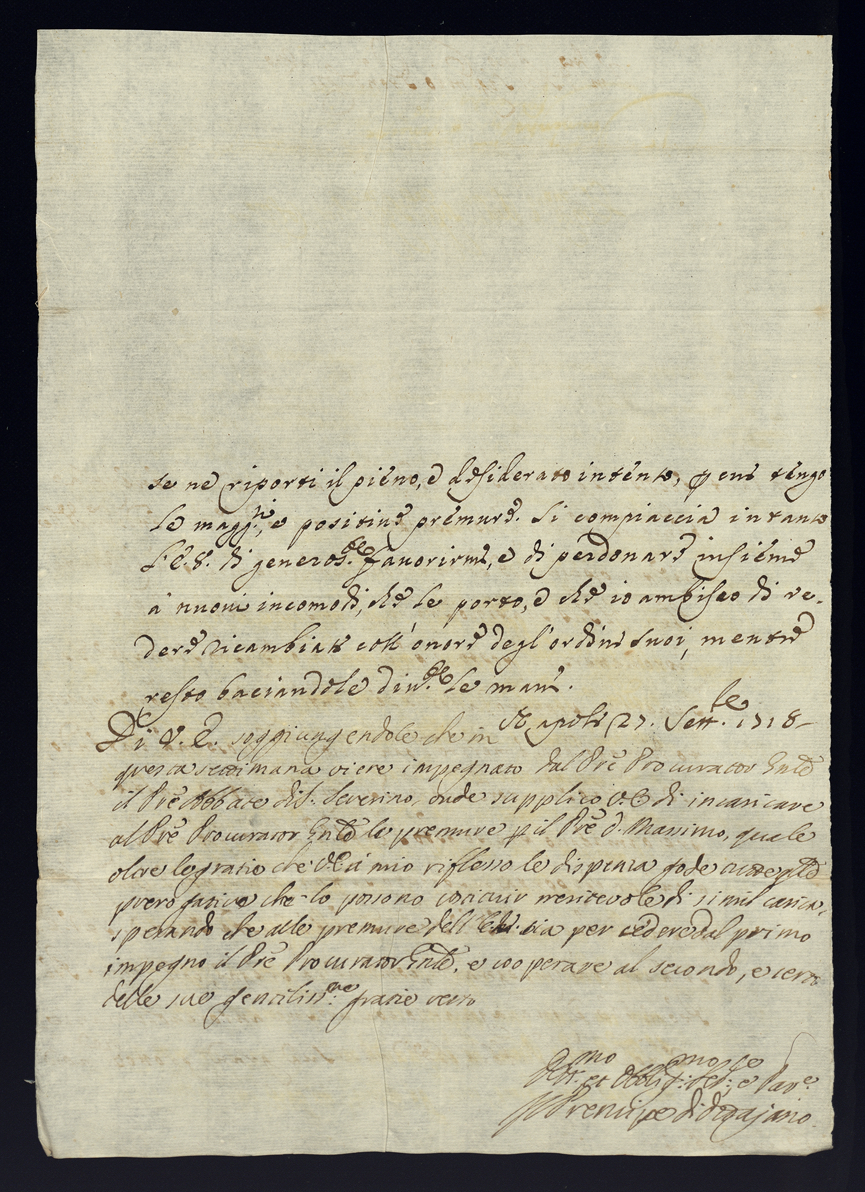 se ne riporti il pieno, e desiderato intento, per cui tengo
le magg.ri, e positive premure. Si compiaccia intanto
l'E. V. di generos.te favorirmi, e di perdonare insieme
a' nuovi incomodi, che le porto, e che io ambisco di ve-
dere ricambiati coll' onore degl' ordini suoi, mentre
resto baciandole div.te le mani.
Di V. E. soggiungendole che in Napoli 27. Sett.re 1718
questa settimana viene impegnato dal Pre Procurator Gnle
il Pre Abbate di S. Severino, onde supplico V. E. di incaricare
al Pre Procurator Gnle le premure p il Pre d. Massimo, quale
oltre le gratie che V. E. a mio riflesso le dispenza gode
prerogative che lo possono meritevole di simil carica,
sperando che alle premure dell' sia per cedere dal primo
impegno il Pre Procurator Gnle, e cooperare al secondo, e certo
delle sue gentiliss.me gratie resto
et Obblig.mo e Par.e
Il Prencipe di Ottajano